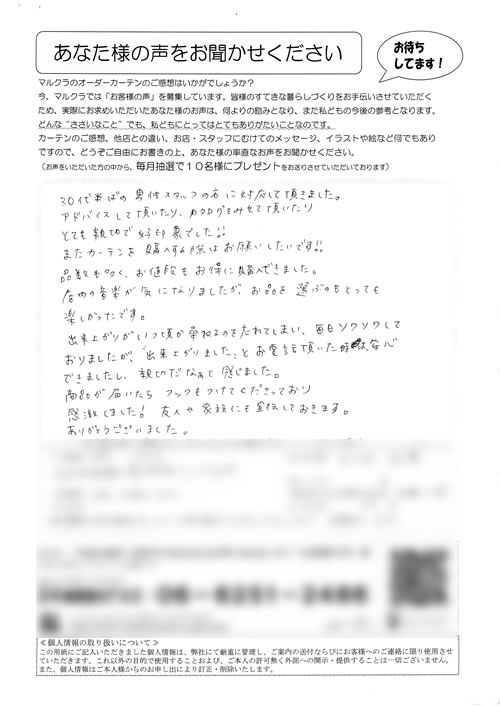 あなた様の声をお聞かせください
お待ち
してます!
マルクラのオーダーカーテンのご感想はいかがでしょうか?
今、マルクラでは「お客様の声」を募集しています。皆様のすてきな暮らしづくりをお手伝いさせていただく
ため、実際にお求めいただいたあなた様のお声は、何よりの励みとなり、また私どもの今後の参考となります。
どんな“ささいなこと”でも、私どもにとってはとてもありがたいことなのです。
カーテンのご感想、他店との違い、お店・スタッフにむけてのメッセージ、イラストや絵など何でもあり
ですので、どうぞご自由にお書きの上、あなた様の率直なお声をお聞かせください。
(お声をいただいた方の中から、毎月抽選で10名様にプレゼントをお送りさせていただいております)
30代半ばの男性スタッフの方に対応して頂きました。
アドバイスして頂いたり、カタログをみせて頂いたり
とても親切で好印象でした!!
またカーテンを購入する際はお願いしたいです!!
品数も多く、お値段もお得に購入できました。
店内の音楽が気になりましたが、お品を選ぶのもとっても
楽しかったです。
出来上がりがいつ頃か尋ねるのを忘れてしまい、毎日ソワソワして
おりましたが、「出来上がりました」とお電話頂いた時は安心
できましたし、親切だなぁと感じました。
商品が届いたら フックもつけてくださっており
感激しました! 友人や家族にも宣伝しておきます。
ありがとうございました。
06-6251-2486
≪個人情報の取り扱いについて≫
この用紙にご記入いただきました個人情報は、弊社にて厳重に管理し、ご案内の送付ならびにお客様へのご連絡に限り使用させ
ていただきます。これ以外の目的で使用することおよび、ご本人の許可無く外部への開示・提供することは一切ございません。
また、個人情報はご本人様からのお申し出により訂正・削除いたします。